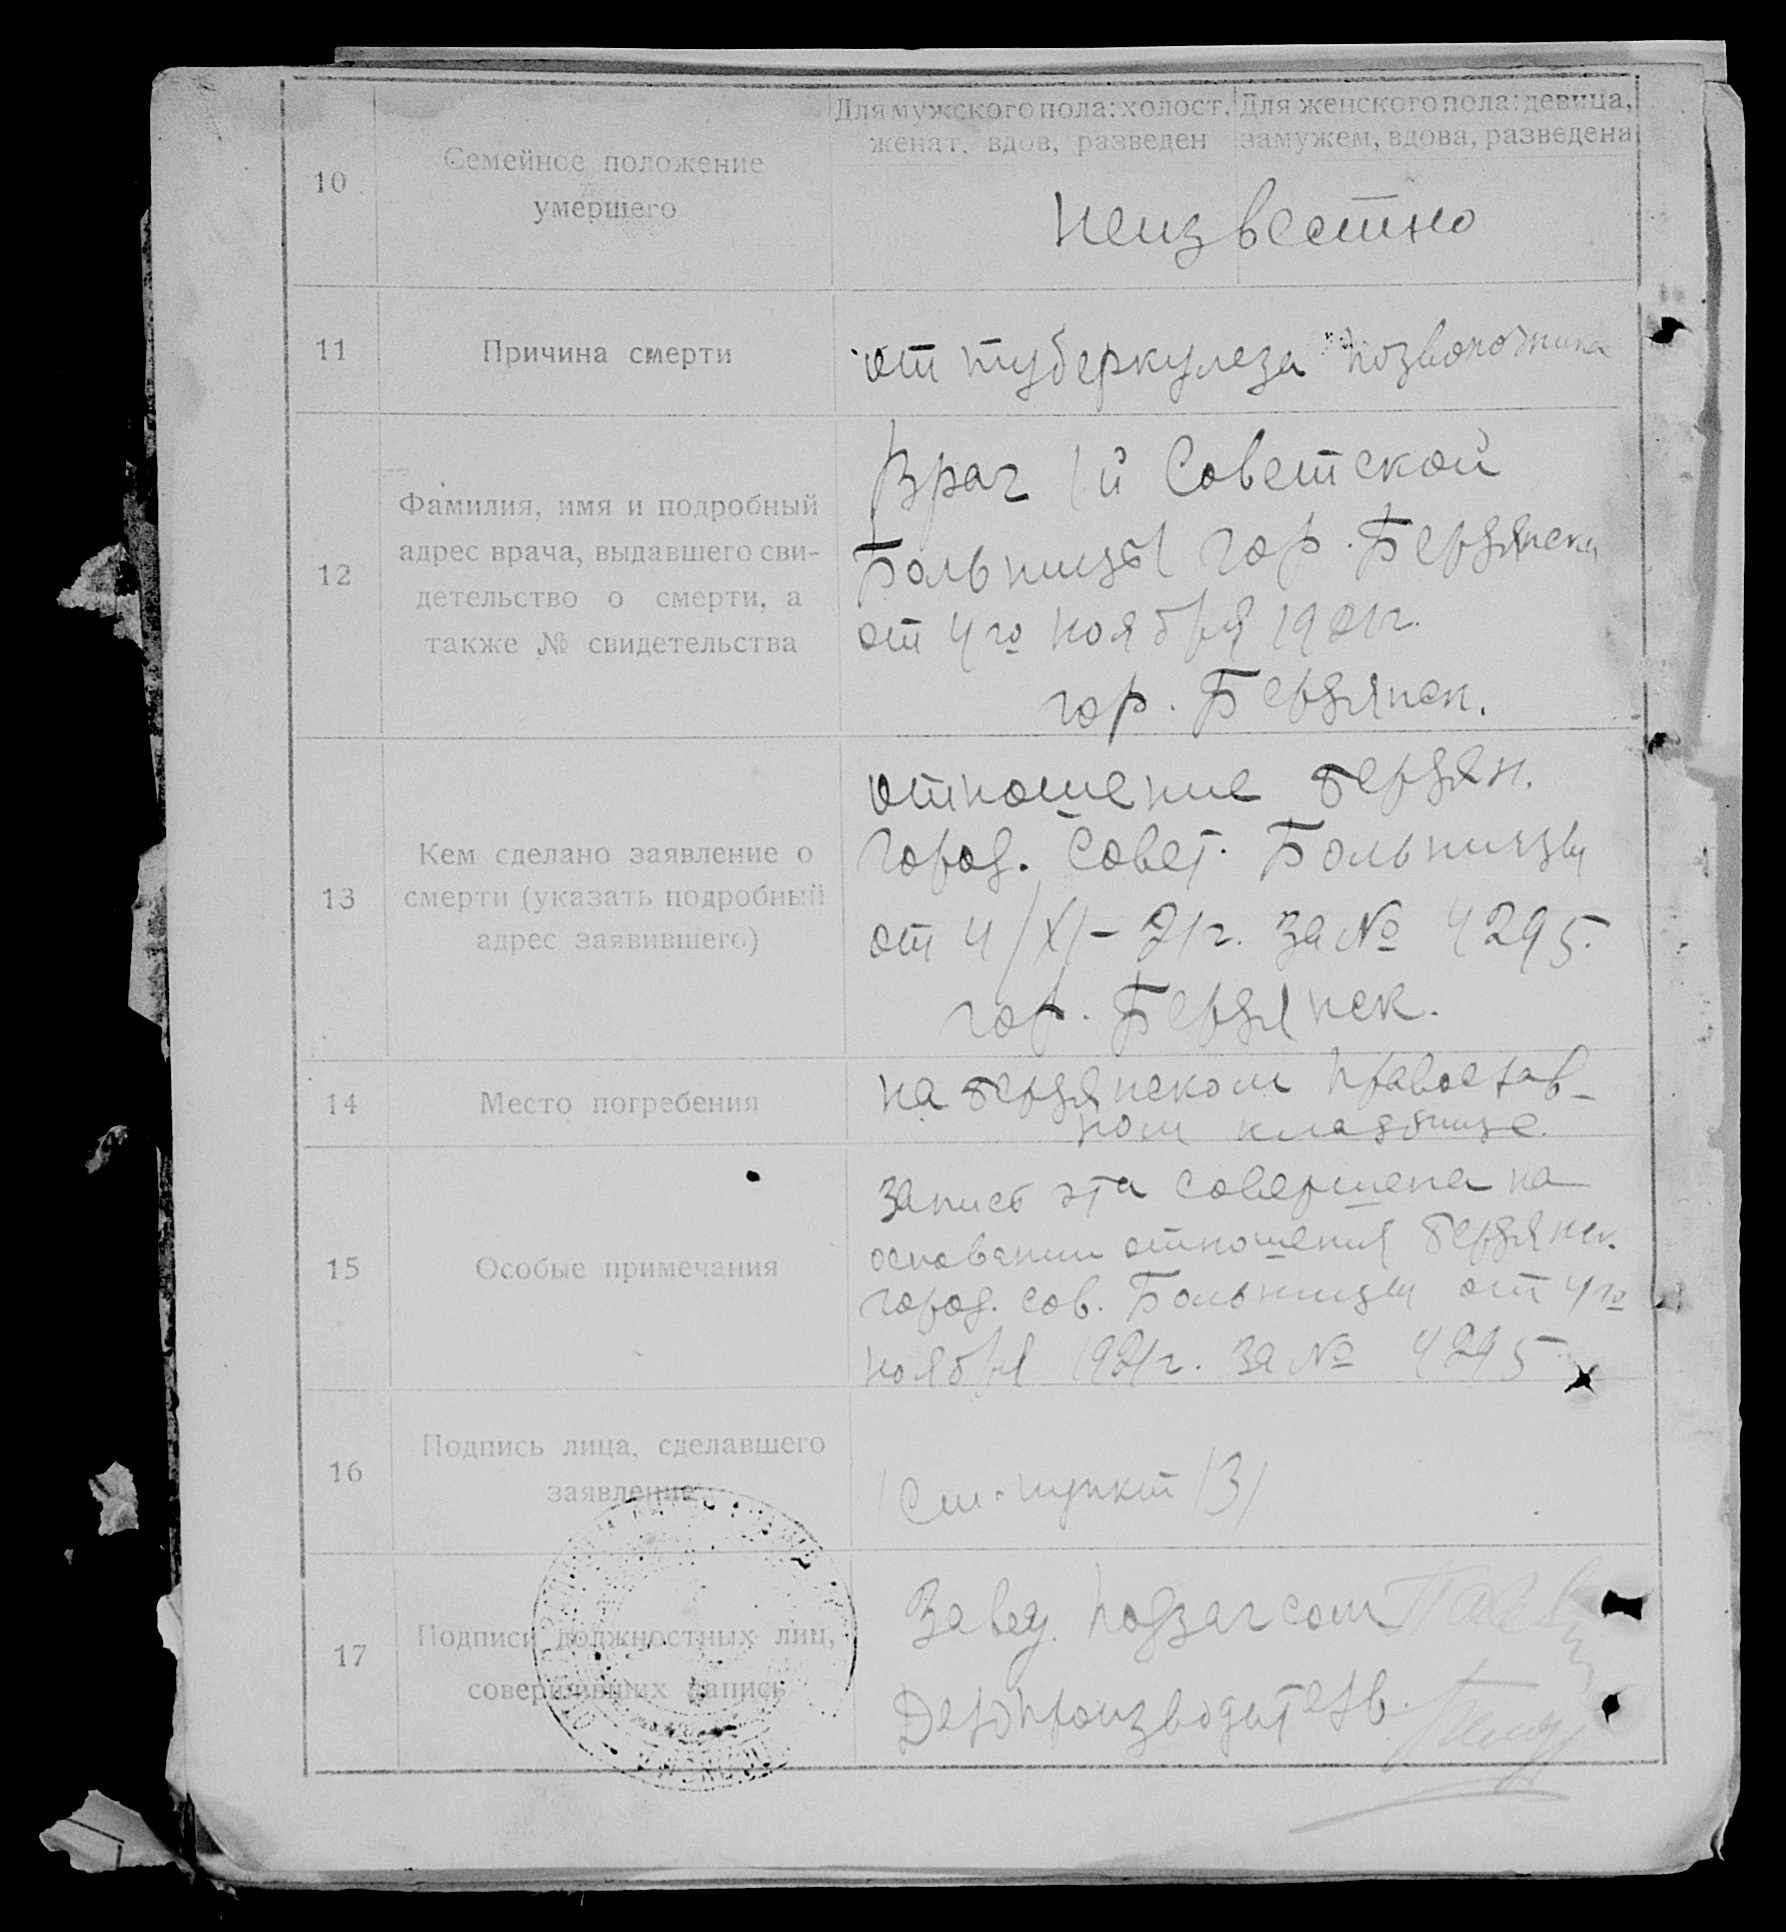 Для мужского пола: холост, женат, вдов, разведен
Для женского пола: девица, замужем, вдова, разведена
10
Семейное положение
умершего
Неизвестно
11
Причина смерти
от туберкулеза позвоночника
12
Фамилия, имя и подробный
адрес врача, выдавшего сви-
детельство о смерти, а
также № свидетельства
Врач 1й Советской
Больницы гор. Бердянска
от 4го ноября 1921г.
гор. Бердянск.
13
Кем сделано заявление о
смерти (указать подробный
адрес заявившего)
отношение Бердян.
город. Совет. Больницы
от 4/XI-21г. за № 4295.
гор. Бердянск.
14
Место погребения
на Бердянском православ-
ном кладбище.
15
Особые примечания
запись эта совершена на
основании отношения Бердянск.
город. сов. Больницы от 4го
ноября 1921г. за № 4295
16
Подпись лица, сделавшего
заявление
/См. пункт 13/
17
Подписи должностных лиц,
совершивших запись
Завед. подзагсом
Делопроизводитель